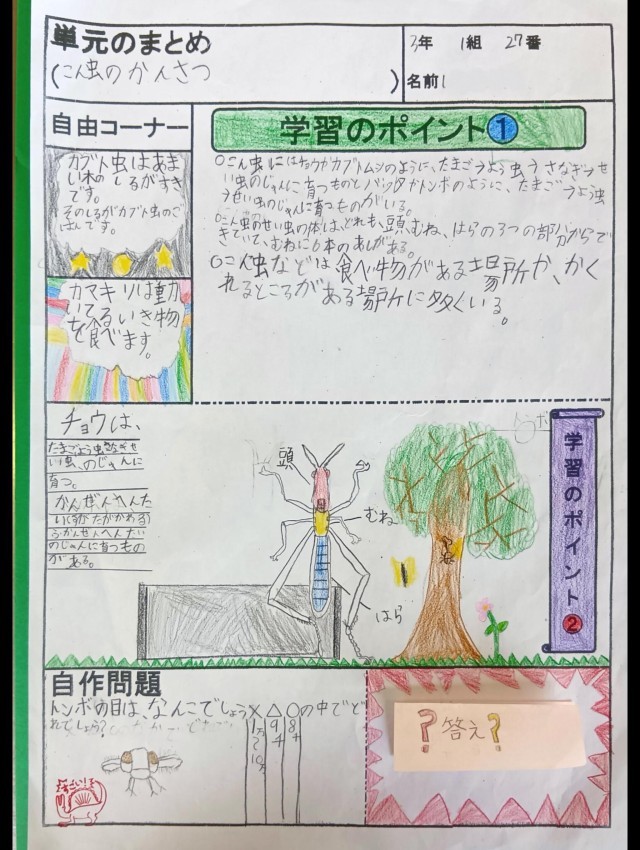 単元のまとめ
(こん虫のかんさつ)
3年 1組 27番
名前
自由コーナー
カブト虫はあま
い木のしるがすき
です。
そのしるがカブト虫のご
はんです。
カマキリは動
いてるいき物
を食べます。
学習のポイント①
○こん虫にはチョウやカブトムシのように、たまご→よう虫→さなぎ→せ
い虫のじゅんに育つものとバッタやトンボのように、たまご→よう虫
→せい虫のじゅんに育つものがいる。
○こん虫のせい虫の体は、どれも、頭、むね、はらの3つの部分からで
きていて、むねに6本のあしがある。
○こん虫などは食べ物がある場所や、かく
れるところがある場所に多くいる。
チョウは、
たまご、よう虫、
い虫、のじゅんに
育つ。
のじゅんに育つもの
がある。
頭
むね
はら
学習のポイント②
自作問題
トンボの目は、なんこでしょう
×△○の中でど
れでしょう?
1万～
?答え?
すごい!